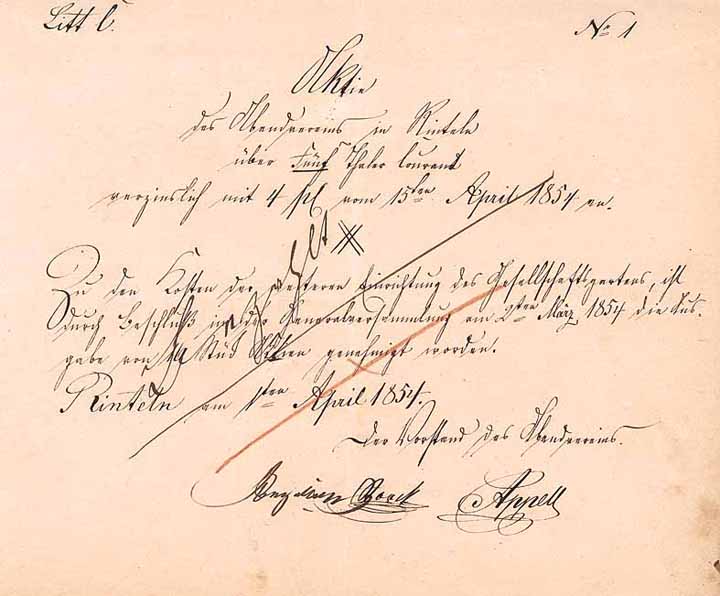 Litt C. No 1
Aktie
des Abendvereins in Rinteln
über Fünf Thaler Courant
verzinslich mit 4 pCt vom 15ten April 1854 an.
Zu den Kosten der weiteren Einrichtung des Gesellschaftsgartens, ist
durch Beschluß in der Generalversammlung am 2ten März 1854 die Aus-
gabe von Stück Aktien genehmigt worden.
Rinteln am 1ten April 1854.
Der Vorstand des Abendvereins.
Appell